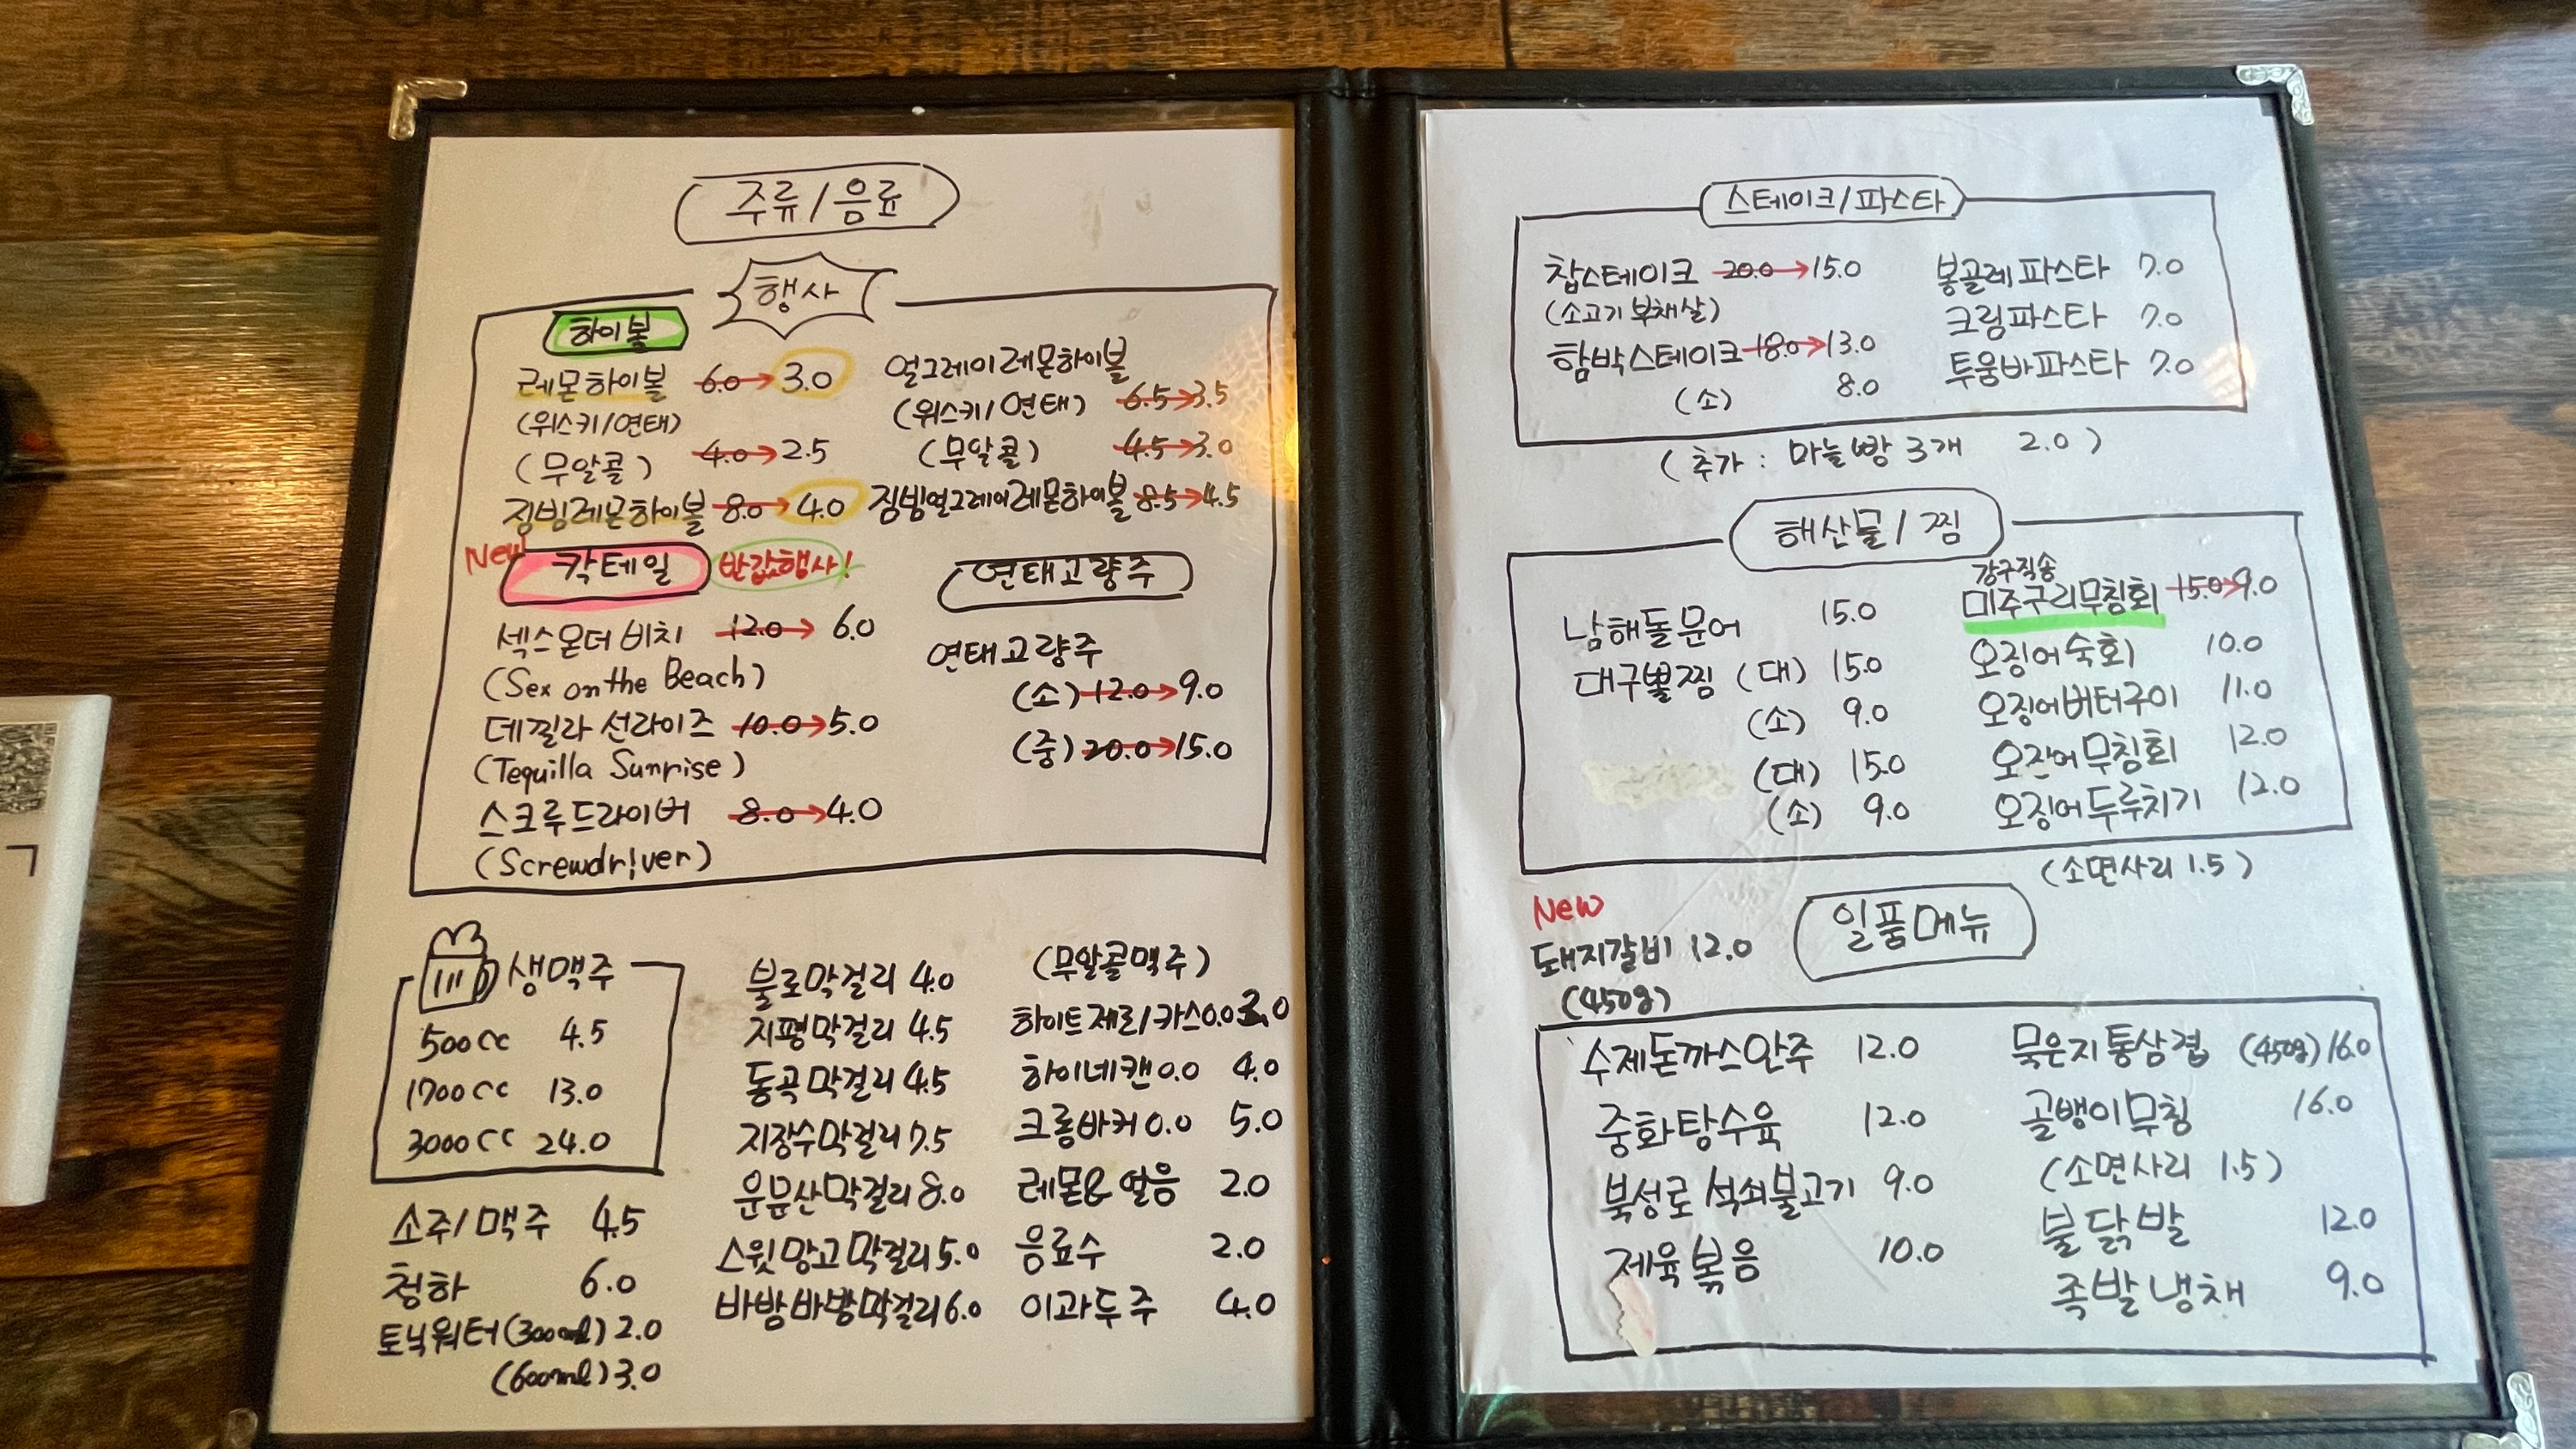 주류/음료
행사
하이볼
레몬하이볼 6.0→3.0
(위스키/연태)
(무알콜) 4.0→2.5
짐빔레몬하이볼 8.0→4.0
얼그레이레몬하이볼
(위스키/연태) 6.5→3.5
(무알콜) 4.5→3.0
짐빔얼그레이레몬하이볼 8.5→4.5
New 칵테일 반값행사!
섹스온더비치 12.0→6.0
(Sex on the Beach)
데낄라 선라이즈 10.0→5.0
(Tequilla Sunrise)
스크루드라이버 8.0→4.0
(Screwdriver)
연태고량주
연태고량주
(소) 12.0→9.0
(중) 20.0→15.0
생맥주
500cc 4.5
1700cc 13.0
3000cc 24.0
소주/맥주 4.5
청하 6.0
토닉워터(300ml) 2.0
(600ml) 3.0
불로막걸리 4.0
지평막걸리 4.5
동곡막걸리 4.5
지장수막걸리 7.5
운문산막걸리 8.0
스윗망고막걸리 5.0
바밤바밤막걸리 6.0
(무알콜맥주)
하이트제로/카스0.0 3.0
하이네캔0.0 4.0
크롬바커0.0 5.0
레몬&얼음 2.0
음료수 2.0
이과두주 4.0
ㄱ
스테이크/파스타
찹스테이크 20.0→15.0
(소고기 부채살)
함박스테이크 18.0→13.0
(소) 8.0
봉골레파스타 7.0
크림파스타 7.0
투움바파스타 7.0
(추가: 마늘빵 3개 2.0)
해산물/찜
남해돌문어 15.0
대구뽈찜 (대) 15.0
(소) 9.0
(대) 15.0
(소) 9.0
강구직송
미주구리무침회 15.0→9.0
오징어숙회 10.0
오징어버터구이 11.0
오징어무침회 12.0
오징어두루치기 12.0
(소면사리 1.5)
New
돼지갈비 12.0
(450g)
일품메뉴
수제돈까스안주 12.0
중화탕수육 12.0
북성로석쇠불고기 9.0
제육볶음 10.0
묵은지통삼겹 (450g) 16.0
골뱅이무침 16.0
(소면사리 1.5)
불닭발 12.0
족발냉채 9.0